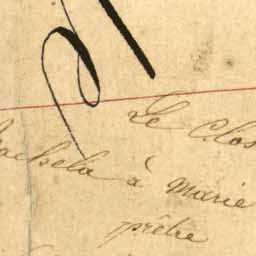 Le Clos
à Marie
prêtre